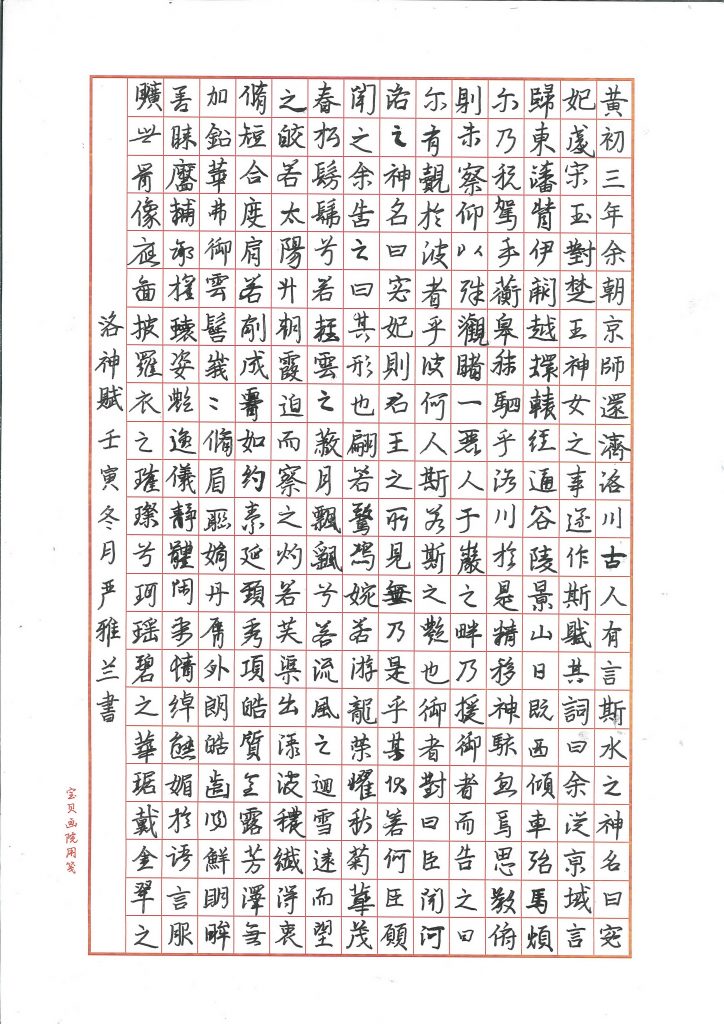 黃初三年余朝京師還濟洛川古人有言斯水之神名曰宓
妃感宋玉對楚王神女之事遂作斯賦其詞曰余從京域言
歸東藩背伊闕越轘轅經通谷陵景山日既西傾車殆馬煩
尔乃稅駕乎蘅皋秣駟乎洛川於是精移神駭忽焉思散俯
則未察仰以殊觀睹一麗人于巖之畔乃援御者而告之曰
尔有覿於彼者乎彼何人斯若斯之艷也御者對曰臣聞河
洛之神名曰宓妃則君王之所見無乃是乎其狀若何臣願
聞之余告之曰其形也翩若驚鴻婉若游龍榮曜秋菊華茂
春松髣髴兮若輕雲之蔽月飄飖兮若流風之迴雪遠而望
之皎若太陽升朝霞迫而察之灼若芙渠出淥波穠纖得衷
脩短合度肩若削成腰如約素延頸秀項皓質呈露芳澤無
加鉛華弗御雲髻峩〻脩眉聯娟丹脣外朗皓齒內鮮明眸
善睞靨輔承權瓌姿艷逸儀靜體閑柔情綽態媚於語言服
曠世骨像應圖披羅衣之璀璨兮珥瑤碧之華琚戴金翠之
洛神賦 壬寅冬月严雅兰書
宝贝画院用笺